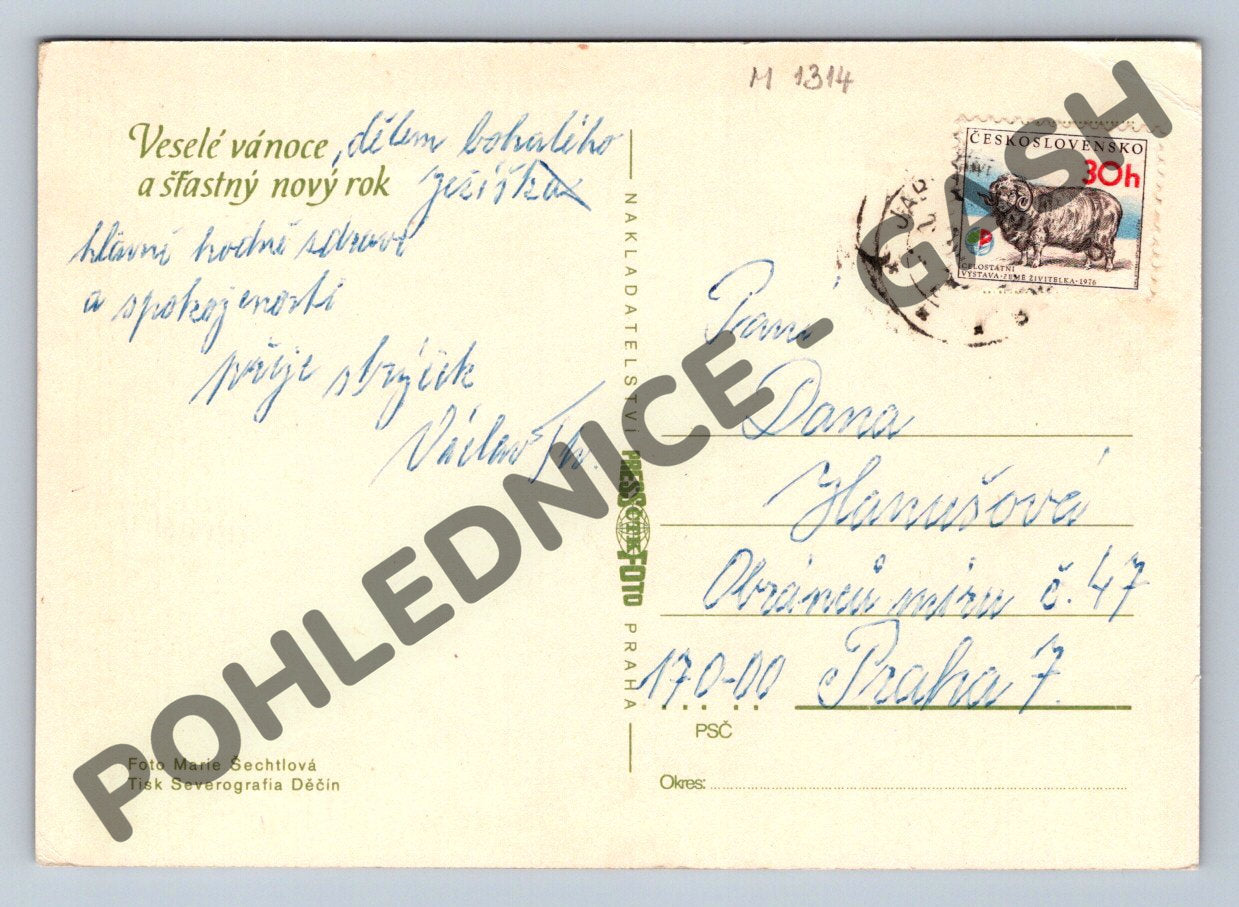 M 1314
Veselé vánoce, dětem bohatého
a šťastný nový rok Ježíška
hlavně hodně zdraví
a spokojenosti
přeje strýček
Václav
Foto Marie Šechtlová
Tisk Severografia Děčín
NAKLADATELSTVÍ PRESSFOTO PRAHA
ČTK
ČESKOSLOVENSKO
30h
CELOSTÁTNÍ
VÝSTAVA · ZEMĚ ŽIVITELKA · 1976
Paní
Dana
Hanušová
Obránců míru č. 47
170-00 Praha 7.
PSČ
Okres:
POHLEDNICE - GASH